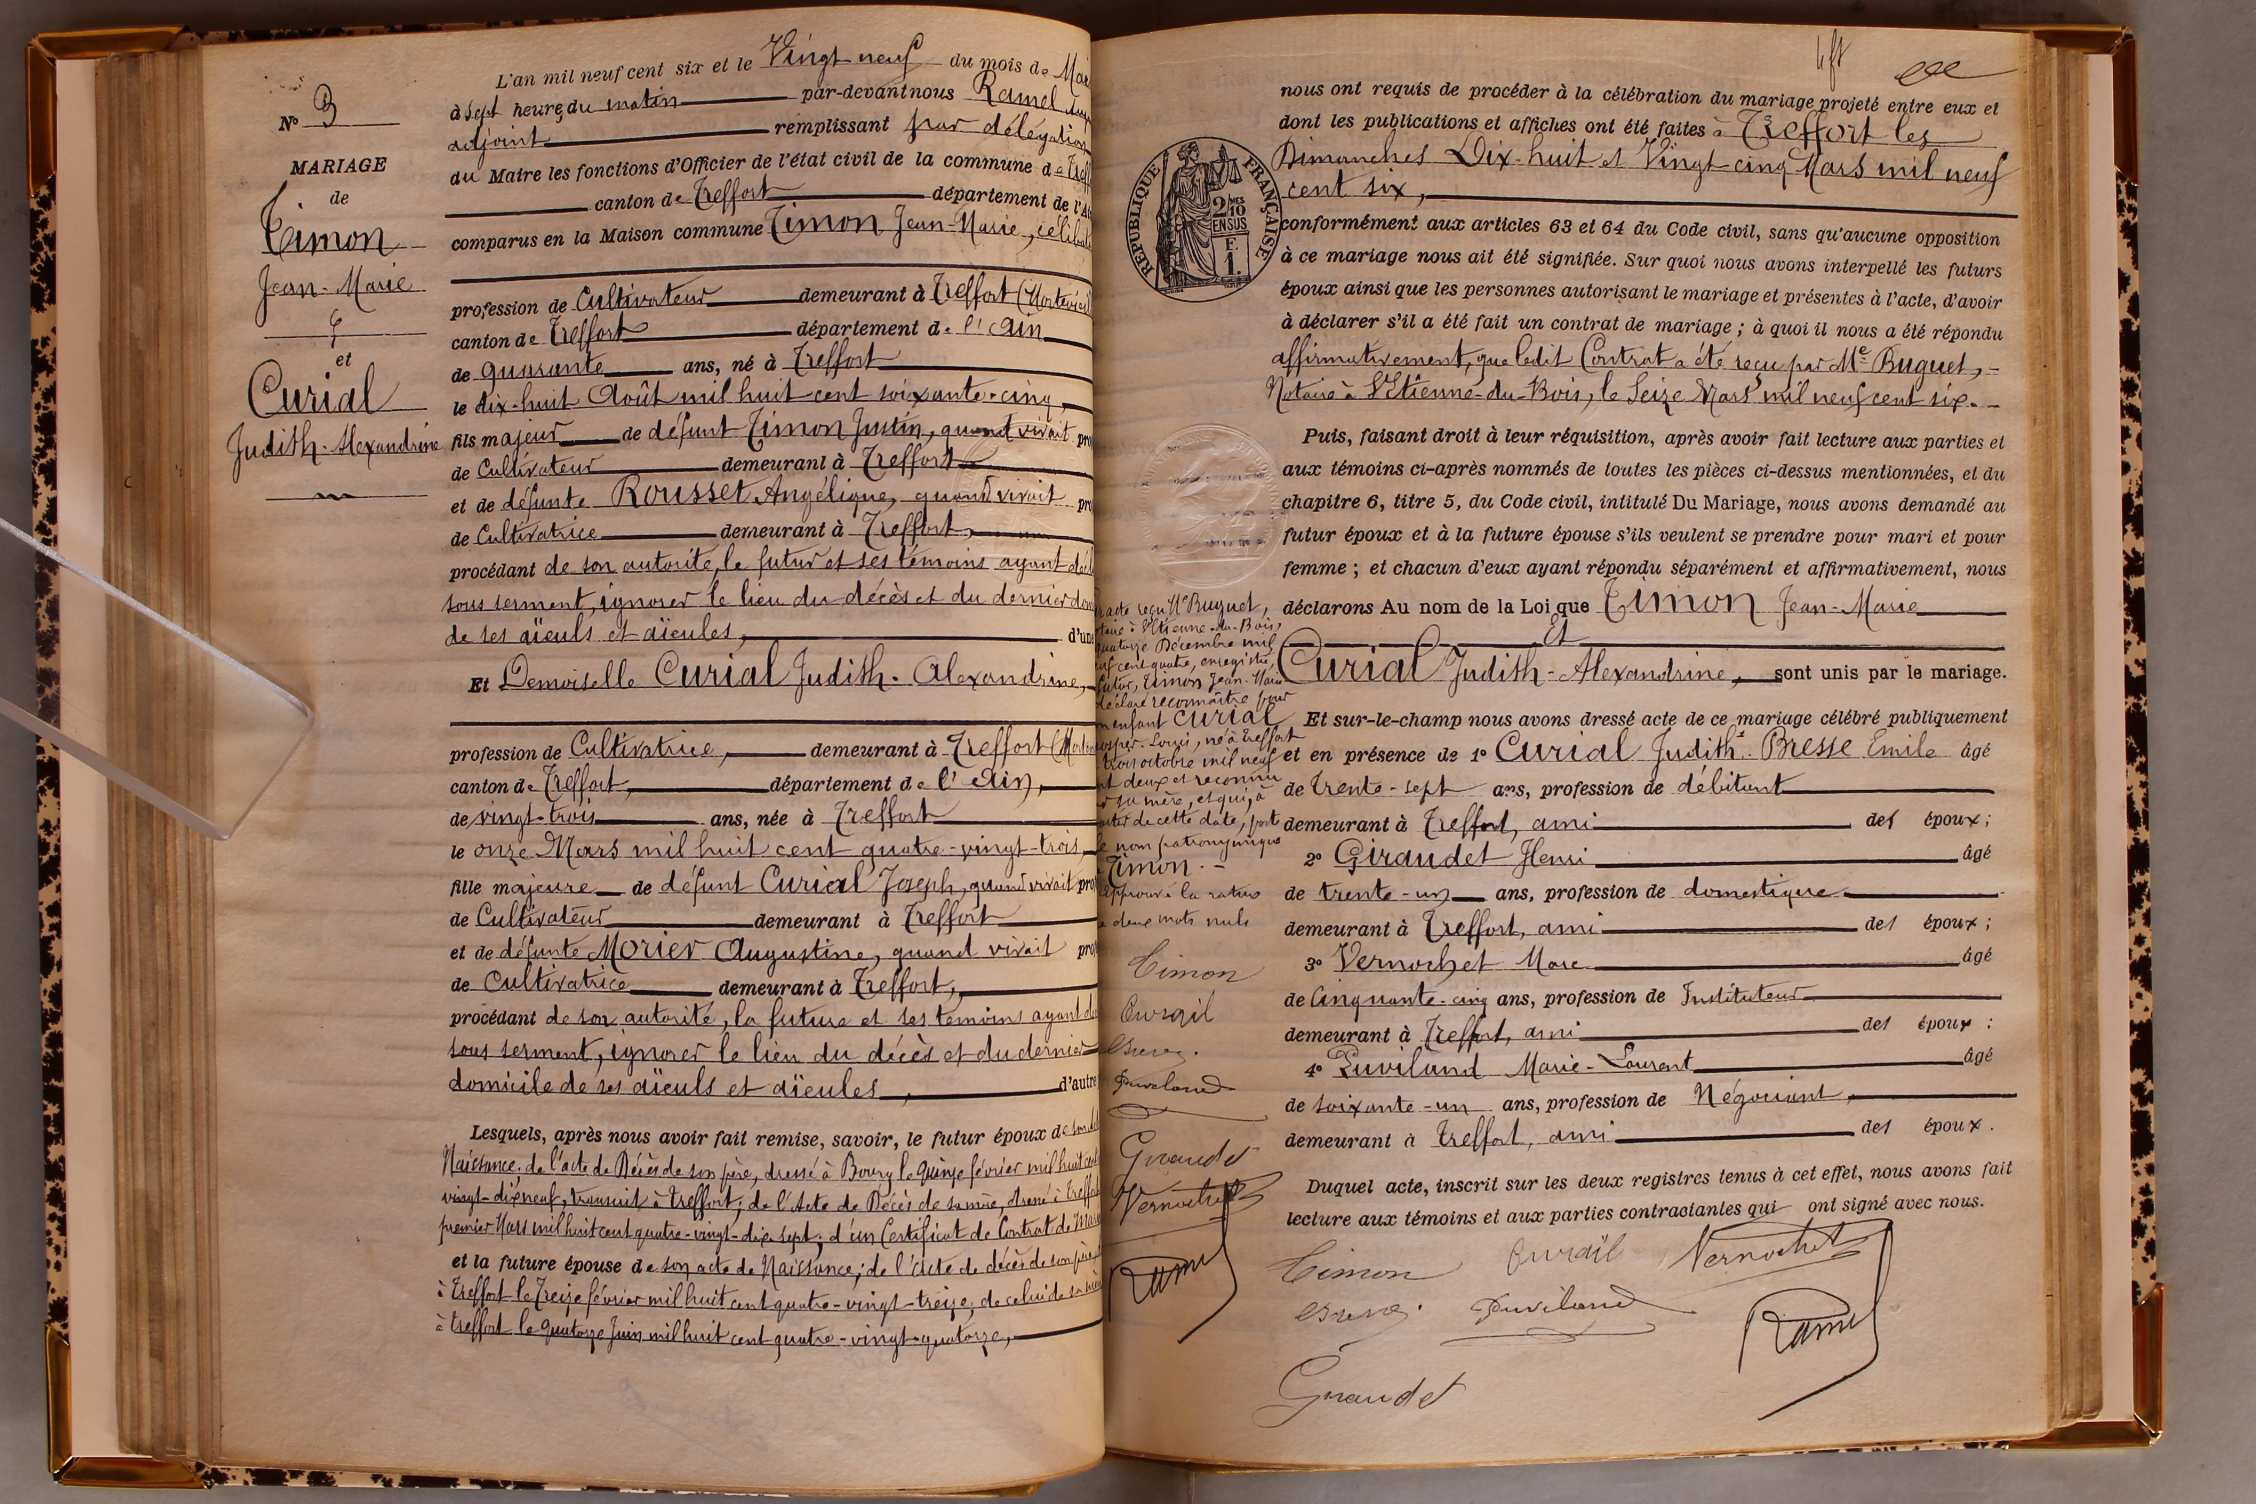 L'an mil neuf cent six et le Vingt-neuf du mois de Mar
à sept heures du matin par-devant nous Ramel
adjoint remplissant par délégation
du Maire les fonctions d'Officier de l'état civil de la commune de Treff
canton de Treffort département de l'A
comparus en la Maison commune Timon Jean-Marie, céliba
profession de Cultivateur demeurant à Treffort
canton de Treffort département de l'Ain
de quarante ans, né à Treffort
le dix-huit Août mil huit cent soixante-cinq,
fils majeur de défunt Timon Justin, quand vivait pro
de Cultivateur demeurant à Treffort
et de défunte Rousset Angélique, quand vivait pro
de Cultivatrice demeurant à Treffort,
procédant de son autorité, le futur et ses témoins ayant décl
sous serment, ignorer le lieu du décès et du dernier dom
de ses aïeuls et aïeules, d'une
Et Demoiselle Curial Judith-Alexandrine,
profession de Cultivatrice, demeurant à Treffort
canton de Treffort, département de l'Ain,
de vingt-trois ans, née à Treffort
le onze Mars mil huit cent quatre-vingt-trois,
fille majeure de défunt Curial Joseph, quand vivait pro
de Cultivateur demeurant à Treffort
et de défunte Morier Augustine, quand vivait pro
de Cultivatrice demeurant à Treffort,
procédant de son autorité, la future et ses témoins ayant dé
sous serment, ignorer le lieu du décès et du dernier
domicile de ses aïeuls et aïeules, d'autre
Lesquels, après nous avoir fait remise, savoir, le futur époux de
Naissance; de l'acte de Décès de son père, dressé à Bourg le quinze février mil huit cent
vingt-dix neuf, transcrit à Treffort; de l'Acte de Décès de sa mère, dressé à Treffort
premier Mars mil huit cent quatre-vingt-dix sept; d'un Certificat de Contrat de Mar
et la future épouse de son acte de Naissance; de l'Acte de décès de son père
à Treffort le Treize février mil huit cent quatre-vingt-treize, de celui de sa mère
à Treffort le quatorze Juin mil huit cent quatre-vingt-quatorze,
No 3
MARIAGE
de
Timon
Jean-Marie
et
Curial
Judith-Alexandrine
nous ont requis de procéder à la célébration du mariage projeté entre eux et
dont les publications et affiches ont été faites à Treffort les
Dimanches Dix-huit et Vingt-cinq Mars mil neuf
cent six,
RÉPUBLIQUE FRANÇAISE
2/10
EN SUS
F.
1.
conformément aux articles 63 et 64 du Code civil, sans qu'aucune opposition
à ce mariage nous ait été signifiée. Sur quoi nous avons interpellé les futurs
époux ainsi que les personnes autorisant le mariage et présentes à l'acte, d'avoir
à déclarer s'il a été fait un contrat de mariage; à quoi il nous a été répondu
affirmativement, que ledit Contrat a été reçu par Me Buguet,
Notaire à St Etienne-du-Bois, le Seize Mars mil neuf cent six.
Puis, faisant droit à leur réquisition, après avoir fait lecture aux parties et
aux témoins ci-après nommés de toutes les pièces ci-dessus mentionnées, et du
chapitre 6, titre 5, du Code civil, intitulé Du Mariage, nous avons demandé au
futur époux et à la future épouse s'ils veulent se prendre pour mari et pour
femme; et chacun d'eux ayant répondu séparément et affirmativement, nous
déclarons Au nom de la Loi que Timon Jean-Marie
Et
Curial Judith-Alexandrine, sont unis par le mariage.
Et sur-le-champ nous avons dressé acte de ce mariage célébré publiquement
et en présence de 1o Curial Judith Bresse Emile âgé
de trente-sept ans, profession de débitant
demeurant à Treffort, ami des époux;
2o Giraudet Henri âgé
de trente-un ans, profession de domestique
demeurant à Treffort, ami des époux;
3o Vernochet Marc âgé
de Cinquante-cinq ans, profession de Instituteur
demeurant à Treffort, ami des époux;
4o Puviland Marie-Laurent âgé
de soixante-un ans, profession de Négociant,
demeurant à Treffort, ami des époux.
Duquel acte, inscrit sur les deux registres tenus à cet effet, nous avons fait
lecture aux témoins et aux parties contractantes qui ont signé avec nous.
Timon Curial Vernochet
Puviland
Ramel
Giraudet
acte reçu Me Buguet,
St Etienne-du-Bois,
quatorze Décembre mil
cent quatre, enregistré,
futur, Timon Jean-Marie
déclaré reconnaître pour
enfant Curial
Louis, né à Treffort
trois octobre mil neuf
deux et reconnu
sa mère, et qui, à
de cette date, porte
nom patronymique
Timon.
approuvé la rature
deux mots nuls
Timon
Curial
Puviland
Giraudet
Vernochet
Ramel